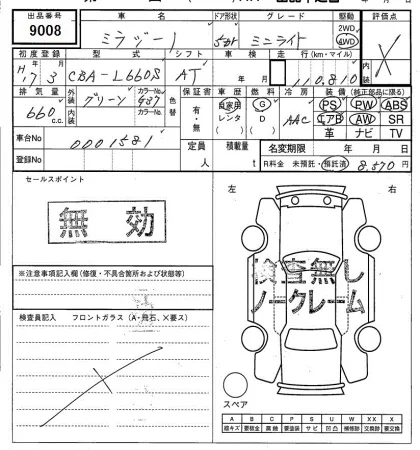 出品番号 車名 ドア形状 グレード 駆動 評価点
9008 ミラジーノ 5ДР ミニライト 2WD 4WD ×
初度登録 型式 シフト 車検 走行(km・マイル) 内装
H17 3 CBA-L660S AT 年 月 110,810
排気量 外装 カラーNo. 色替 保証書 車歴 燃料 冷房 装備(純正部品に限る)
660 c.c. グリーン G37 有・無 自家用 レンタ G D AAC PS PW ABS
内装 カラーNo. エアB AW SR
革 ナビ TV
車台No 0001581 定員 人 積載量 t 名変期限 年 月 日
登録No R料金 未預託・預託済 8,570円
セールスポイント
無効
左 右
※注意事項記入欄(修復・不具合箇所および状態等)
検査無し
ノークレーム
検査員記入 フロントガラス(A・飛石、X要ス)
スペア
A B C P S U W X XX
線キズ 要板金 腐蝕 要塗装 サビ 凹凸 補修跡 交換跡 要交換